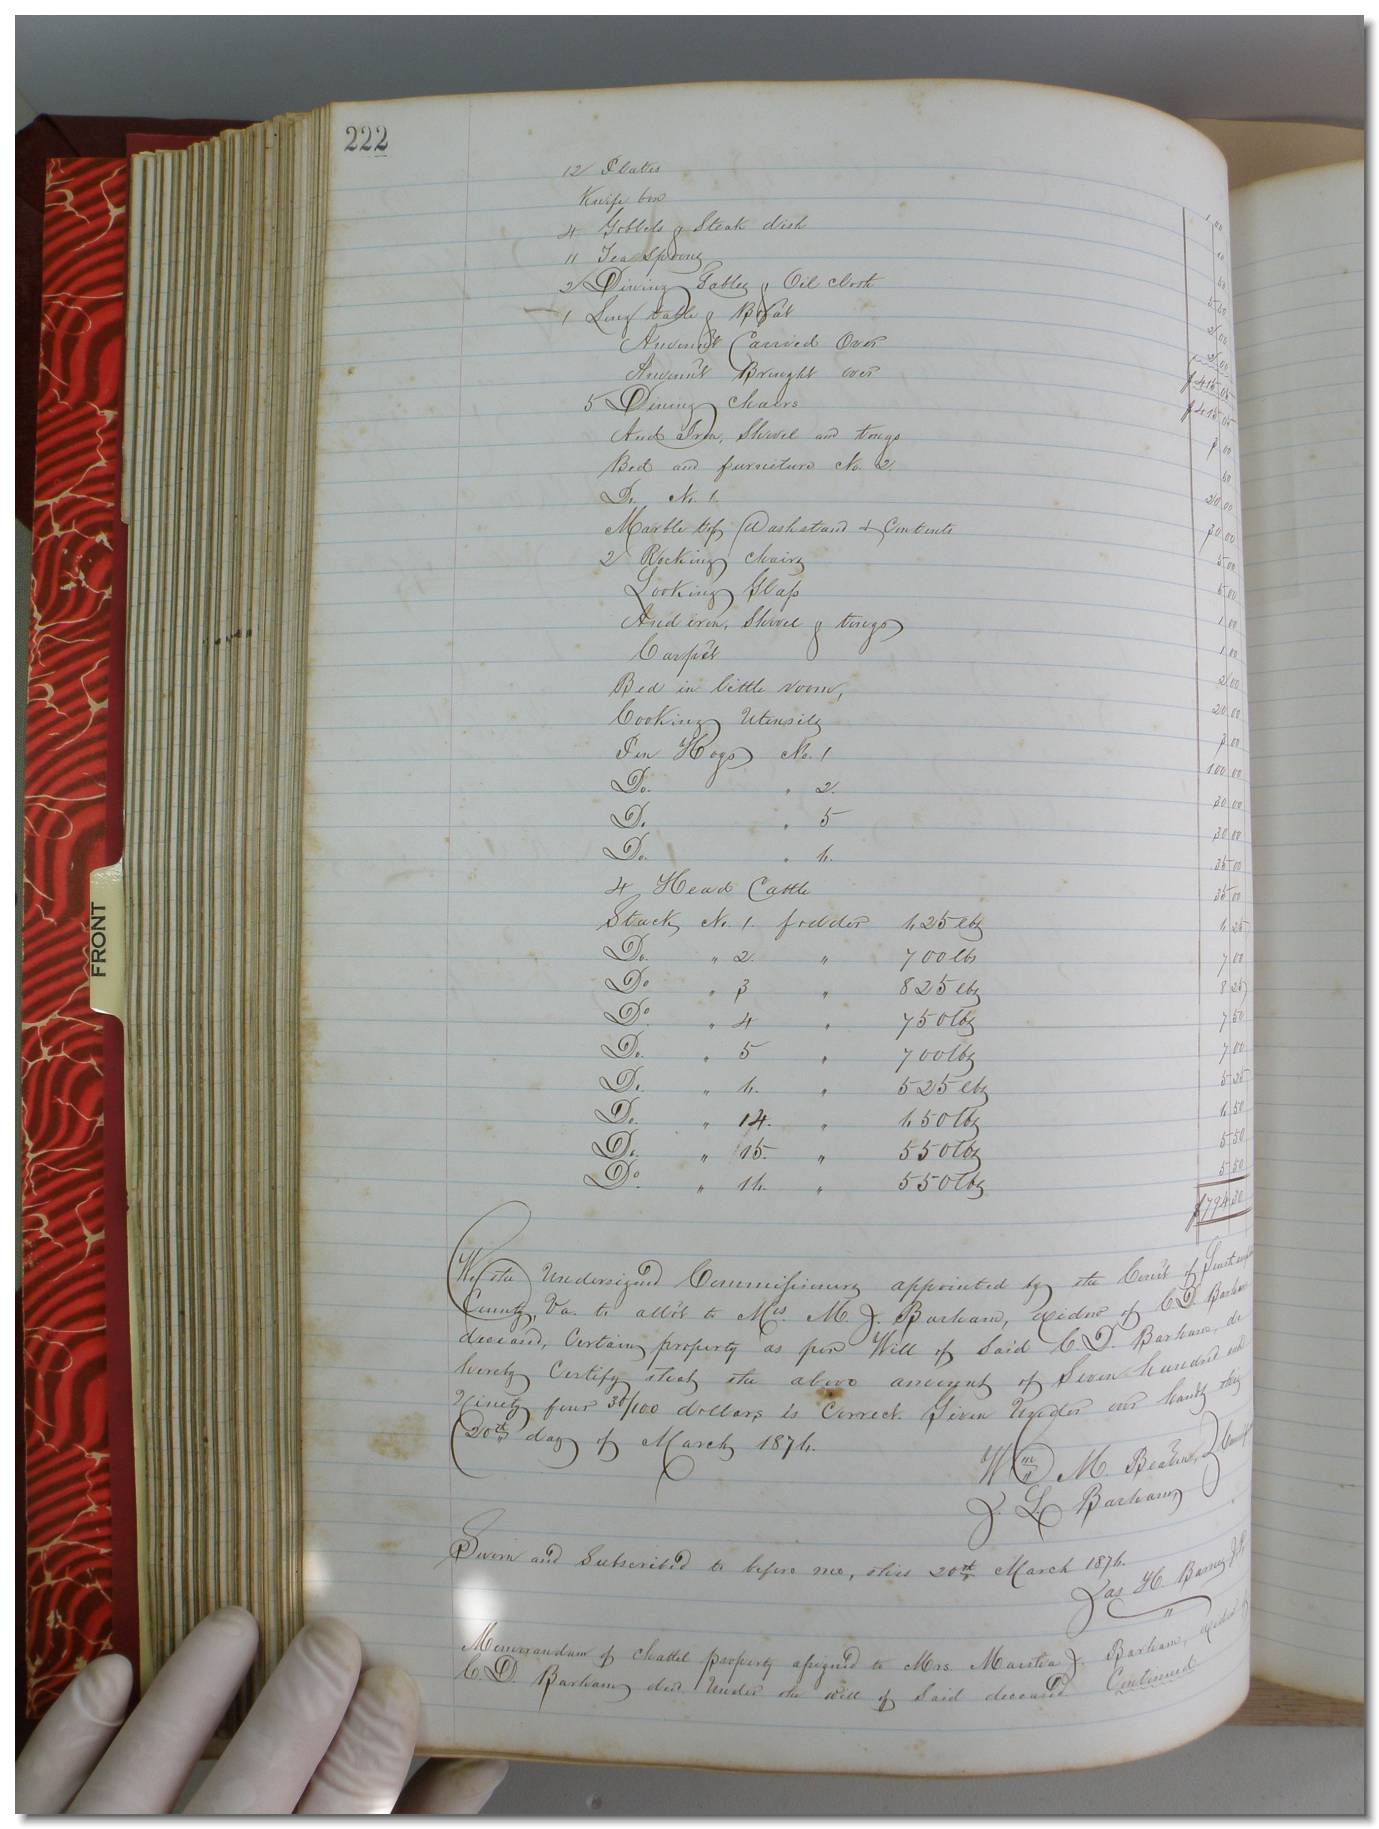 222
12 Plates 1 00
Knife box 10
4 Gobbels & Steak dish 50
11 Tea Spoons 5 50
2 Dining Tables & Oil cloth 2 00
1 Long table & 2 00
Amount Carried Over $415 05
Amount Brought over $415 05
5 Dining chairs 3 00
And Iron, Shovel and tongs 50
Bed and furniture No. 2 20 00
Do. No. 1. 30 00
Marble top Washstand & Contents 5 00
2 Rocking chairs 5 00
Looking Glass 1 00
And iron, Shovel & tongs 1 00
Carpet 2 00
Bed in little room, 20 00
Cooking Utensils 3 00
Pen Hogs No. 1 100 00
Do. " 2. 30 00
Do. " 5 30 00
Do. " 6. 35 00
4 Head Cattle 35 00
Stack No. 1. fodder 625 lbs 6 25
Do. " 2. " 700 lbs 7 00
Do " 3 " 825 lbs 8 25
Do " 4 " 750 lbs 7 50
Do. " 5 " 700 lbs 7 00
Do. " 6. " 525 lbs 5 25
Do. " 14. " 650 lbs 6 50
Do. " 15. " 550 lbs 5 50
Do " 16. " 550 lbs 5 50
$794 30
We the Undersigned Commissioners appointed by the Court of
County, Va. to allot to Mrs. M. J. Barham, widow of C. D. Barham
deceased, Certain property as per Will of Said C. D. Barham, do
hereby Certify that the above amount of Seven hundred and
Ninety four 30/100 dollars is Correct. Given Under our hands this
20th day of March 1876.
Wm M.
J. L. Barham,
Sworn and Subscribed to before me, this 20th March 1876.
Jas H.
Memorandum of chattel property assigned to Mrs. Martha J. Barham, widow of
C. D. Barham decd. Under the will of Said deceased Continued
FRONT